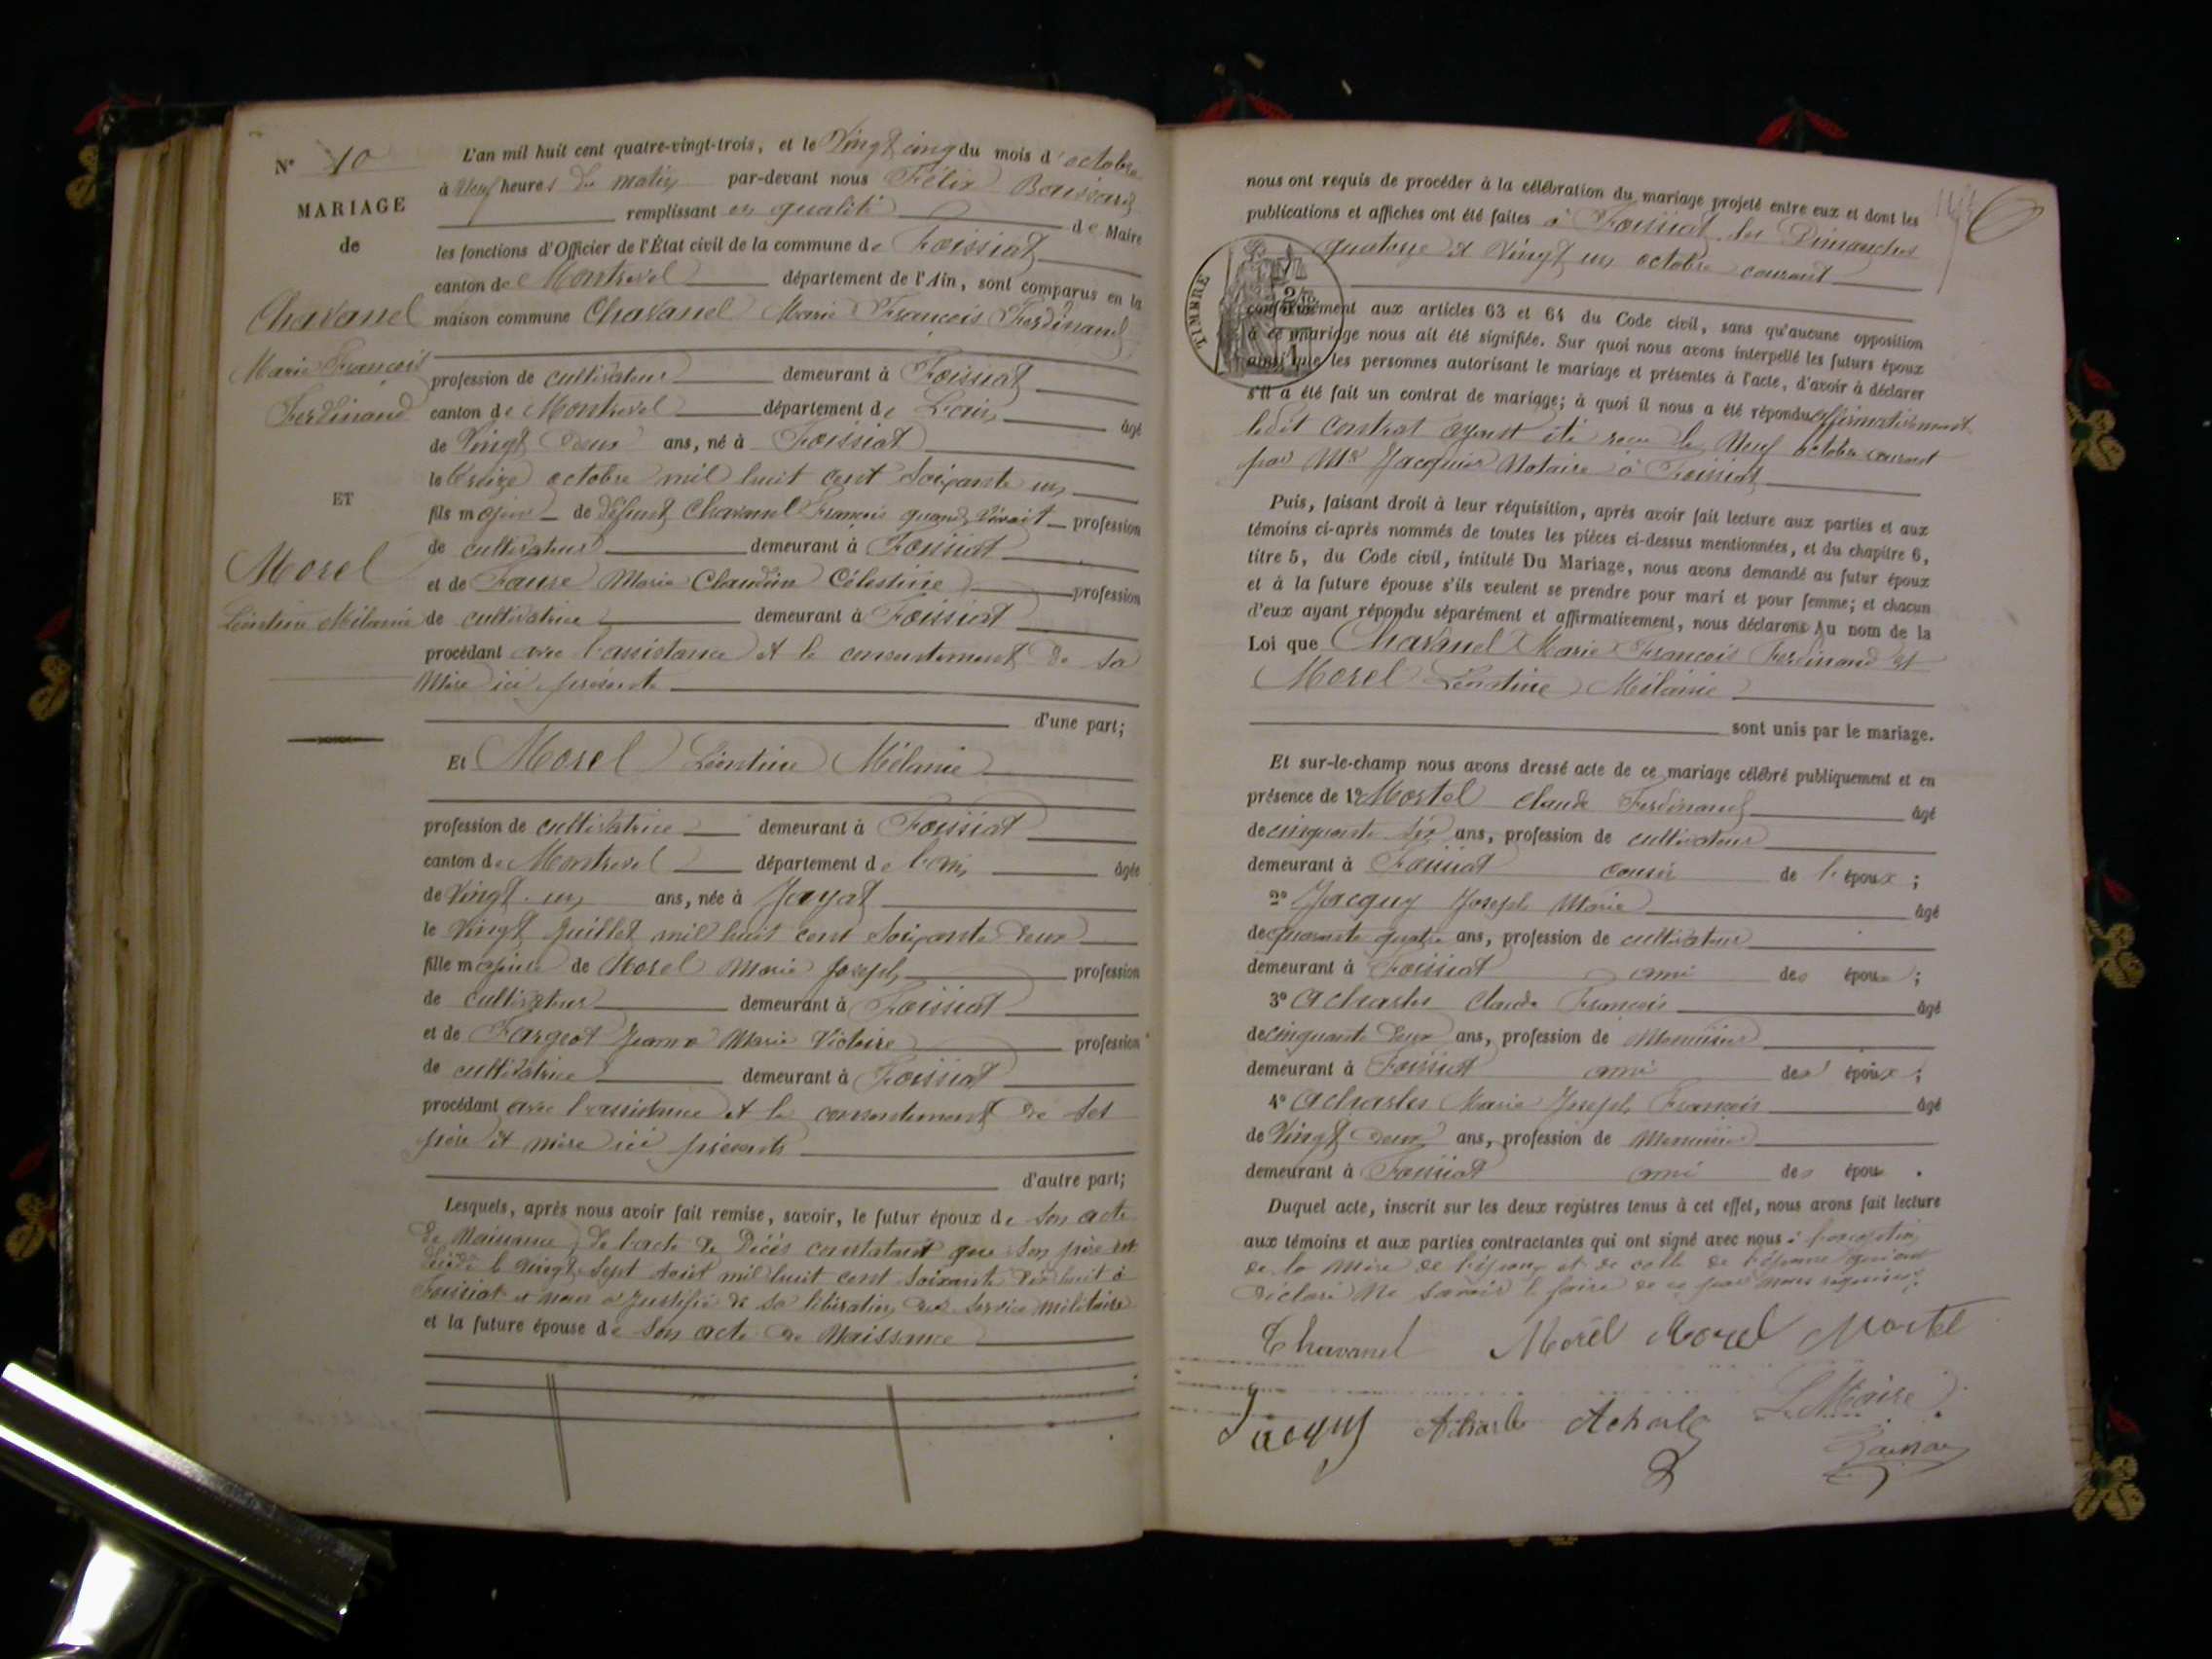 N° 10
MARIAGE
de
Chavanel
Marie François
Ferdinand
ET
Morel
Léontine Mélanie
L'an mil huit cent quatre-vingt-trois, et le Vingt cinq du mois d'octobre
à Neuf heures du matin par-devant nous Félix
remplissant en qualité de Maire
les fonctions d'Officier de l'État civil de la commune de Foissiat
canton de Montrevel département de l'Ain, sont comparus en la
maison commune Chavanel Marie François Ferdinand
profession de cultivateur demeurant à Foissiat
canton de Montrevel département de l'ain, âgé
de Vingt Deux ans, né à Foissiat
le treize octobre mil huit cent soixante un
fils majeur de Défunt Chavanel François quand vivait profession
de cultivateur demeurant à Foissiat
et de Faure Marie Claudine Célestine profession
de cultivatrice demeurant à Foissiat
procédant avec l'assistance et le consentement de sa
Mère ici présente
d'une part;
Et Morel Léontine Mélanie
profession de cultivatrice demeurant à Foissiat
canton de Montrevel département de l'ain, âgée
de Vingt un ans, née à Jayat
le Vingt Juillet mil huit cent soixante deux
fille majeure de Morel Marie Joseph profession
de cultivateur demeurant à Foissiat
et de Fargeot Jeanne Marie Victoire profession
de cultivatrice demeurant à Foissiat
procédant avec l'assistance et le consentement de ses
père et mère ici présents
d'autre part;
Lesquels, après nous avoir fait remise, savoir, le futur époux de son acte
de Naissance, de l'acte de Décès constatant que son père est
décédé le vingt sept août mil huit cent soixante dix huit à
Foissiat et nous a justifié de sa libération du service militaire
et la future épouse de son acte de Naissance
nous ont requis de procéder à la célébration du mariage projeté entre eux et dont les
publications et affiches ont été faites à Foissiat les Dimanches
quatorze et Vingt un octobre courant
TIMBRE
conformément aux articles 63 et 64 du Code civil, sans qu'aucune opposition
à ce mariage nous ait été signifiée. Sur quoi nous avons interpellé les futurs époux
ainsi que les personnes autorisant le mariage et présentes à l'acte, d'avoir à déclarer
s'il a été fait un contrat de mariage; à quoi il nous a été répondu affirmativement
ledit contrat ayant été reçu le Neuf octobre courant
par Me Jacquier Notaire à Foissiat
Puis, faisant droit à leur réquisition, après avoir fait lecture aux parties et aux
témoins ci-après nommés de toutes les pièces ci-dessus mentionnées, et du chapitre 6,
titre 5, du Code civil, intitulé Du Mariage, nous avons demandé au futur époux
et à la future épouse s'ils veulent se prendre pour mari et pour femme; et chacun
d'eux ayant répondu séparément et affirmativement, nous déclarons Au nom de la
Loi que Chavanel Marie François Ferdinand et
Morel Léontine Mélanie
sont unis par le mariage.
Et sur-le-champ nous avons dressé acte de ce mariage célébré publiquement et en
présence de 1° Mortel Claude Ferdinand âgé
de cinquante six ans, profession de cultivateur
demeurant à Foissiat cousin de l'époux;
2° Jacquy Joseph Marie âgé
de quarante quatre ans, profession de cultivateur
demeurant à Foissiat ami des époux;
3° Acharles Claude François âgé
de cinquante Deux ans, profession de Menuisier
demeurant à Foissiat ami des époux;
4° Acharles Marie Joseph François âgé
de Vingt Deux ans, profession de Menuisier
demeurant à Foissiat ami des époux.
Duquel acte, inscrit sur les deux registres tenus à cet effet, nous avons fait lecture
aux témoins et aux parties contractantes qui ont signé avec nous à l'exception
de la Mère de l'époux et de celle de l'épouse qui ont
déclaré Ne savoir le faire de ce par nous requises.
Chavanel Morel Morel Mortel
Jacquy Acharles Acharles Le Maire